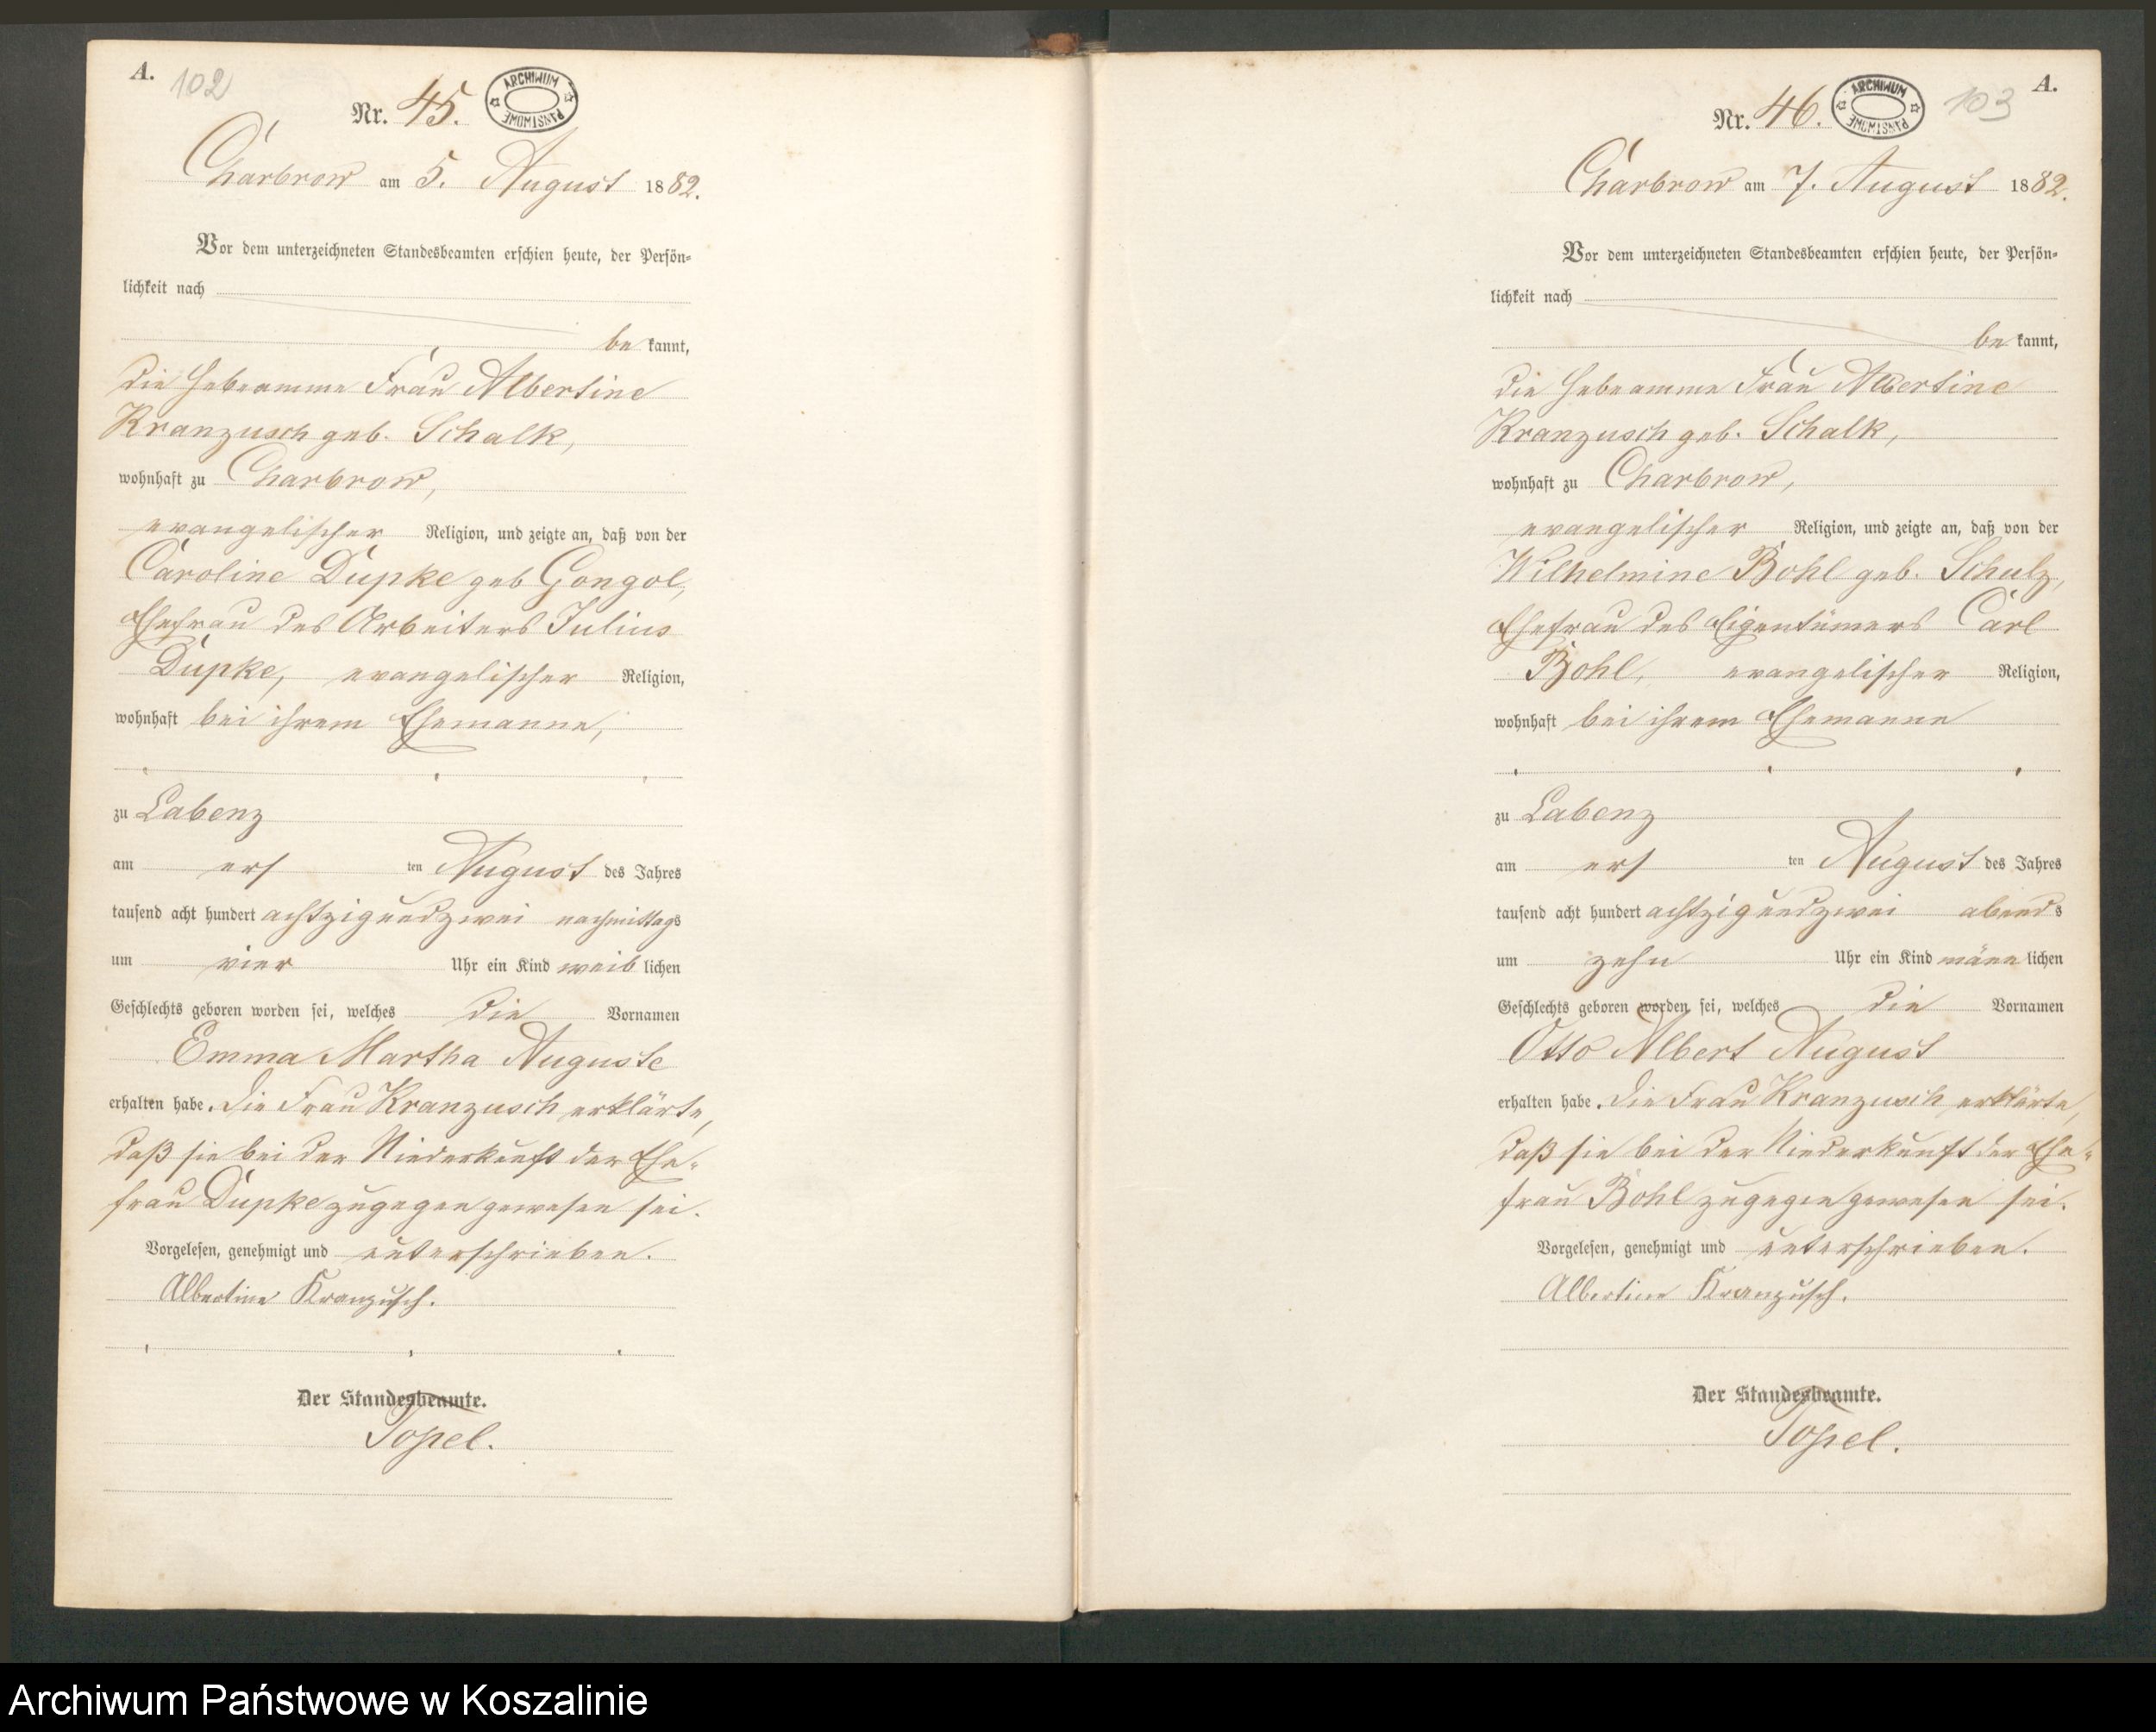 A.
102
Nr. 45.
ARCHIWUM PAŃSTWOWE
Charbrow am 5. August 1882.
Vor dem unterzeichneten Standesbeamten erschien heute, der Persön-
lichkeit nach
be kannt,
die Hebeamme Frau Albertine
Kranzusch geb. Schalk,
wohnhaft zu Charbrow,
evangelischer Religion, und zeigte an, daß von der
Caroline Dupke geb Gongol,
Ehefrau des Arbeiters Julius
Dupke, evangelischer Religion,
wohnhaft bei ihrem Ehemanne,
zu Labenz
am ers ten August des Jahres
tausend acht hundert achtzigundzwei nachmittags
um vier Uhr ein Kind weib lichen
Geschlechts geboren worden sei, welches die Vornamen
Emma Martha Auguste
erhalten habe. Die Frau Kranzusch erklärte,
daß sie bei der Niederkunft der Ehe-
frau Dupke zugegen gewesen sei.
Vorgelesen, genehmigt und unterschrieben.
Albertine Kranzusch.
Der Standesbeamte.
Topel.
A.
103
Nr. 46.
ARCHIWUM PAŃSTWOWE
Charbrow am 7. August 1882.
Vor dem unterzeichneten Standesbeamten erschien heute, der Persön-
lichkeit nach
be kannt,
die Hebeamme Frau Albertine
Kranzusch geb. Schalk,
wohnhaft zu Charbrow,
evangelischer Religion, und zeigte an, daß von der
Wilhelmine Bohl geb. Schulz,
Ehefrau des Eigentümers Carl
Bohl, evangelischer Religion,
wohnhaft bei ihrem Ehemanne
zu Labenz
am ers ten August des Jahres
tausend acht hundert achtzigundzwei abends
um zehn Uhr ein Kind männ lichen
Geschlechts geboren worden sei, welches die Vornamen
Otto Albert August
erhalten habe. Die Frau Kranzusch erklärte,
daß sie bei der Niederkunft der Ehe-
frau Bohl zugegen gewesen sei.
Vorgelesen, genehmigt und unterschrieben.
Albertine Kranzusch.
Der Standesbeamte.
Topel.
Archiwum Państwowe w Koszalinie